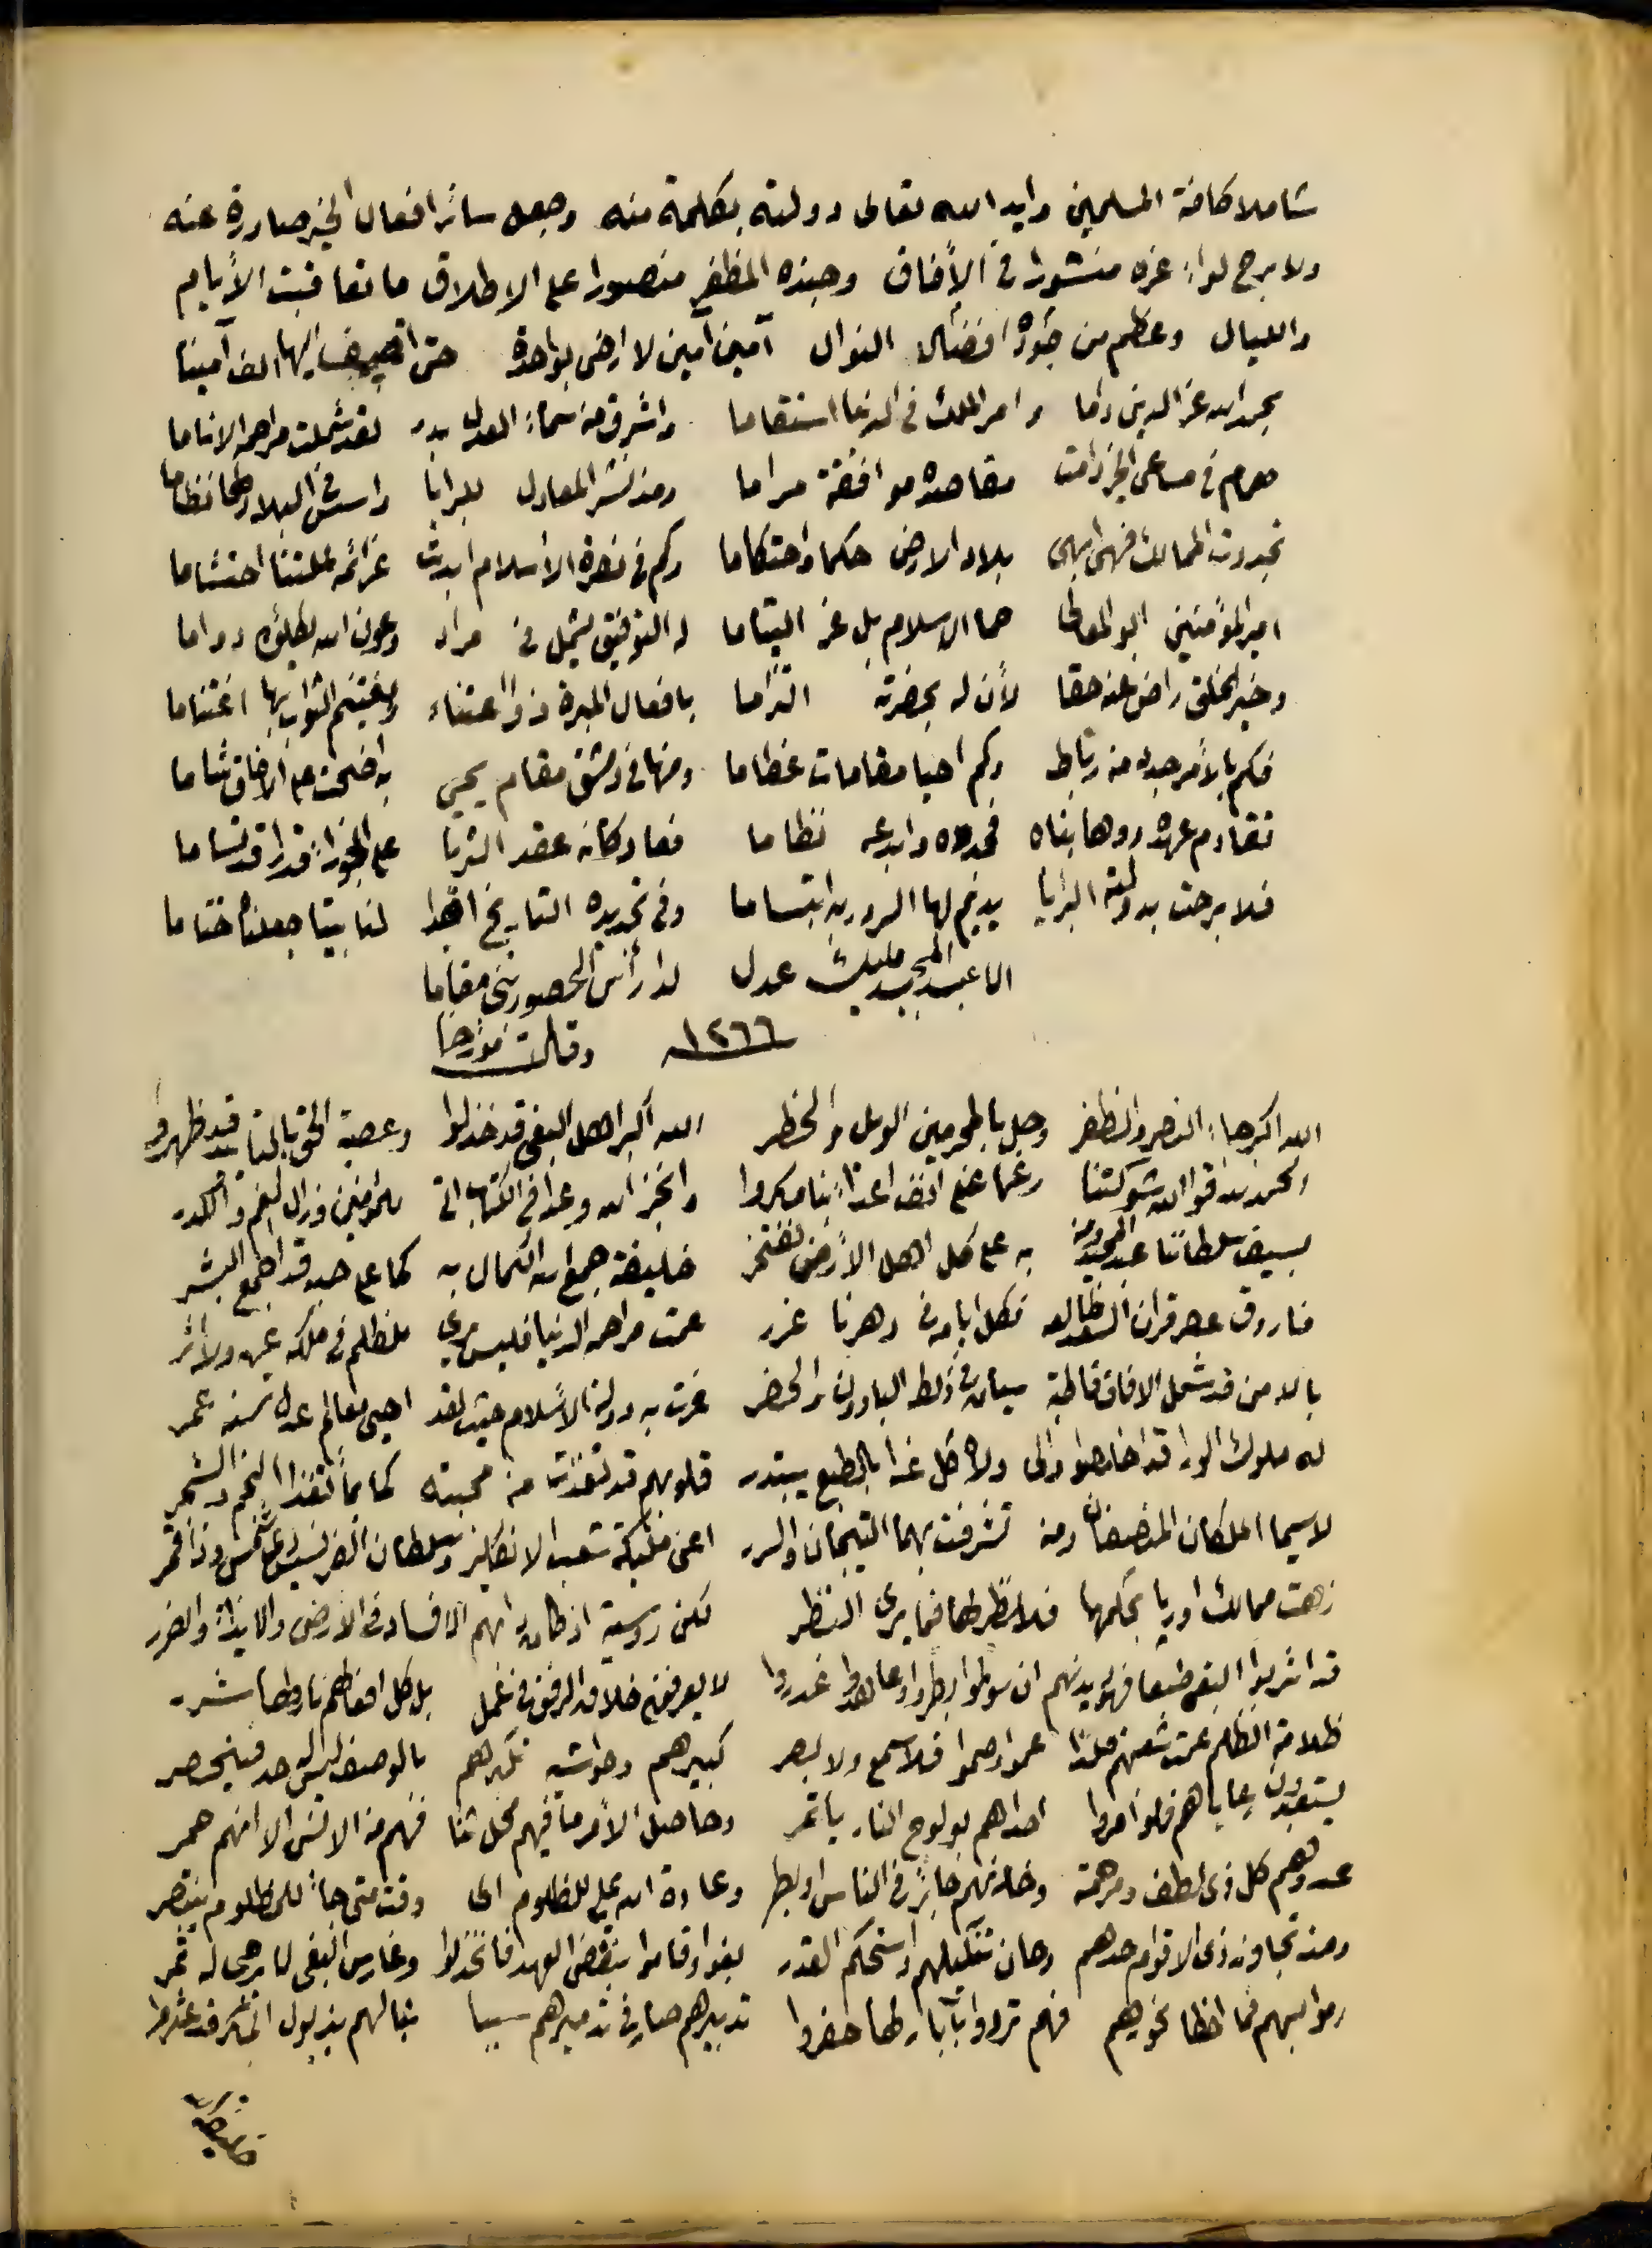 شاملا كافة المسلمين وايد الله تعالى دولته بكلمة منه وجعل سائر افعال الخير صادرة عنه
ولا برح لواء عزه منشورا في الأفاق وجنده المظفر منصورا على الاطلاق ما تعاقبت الأيام
والليال وعظم من جوده افضال النوال آمين آمين لا ارضى بواحدة حتى اضيف اليها الف آمينا
بحمد الله عز الدين داما وامر الملك في الدنيا استقاما واشرق من سماء العدل بدر لقد شملت مراحمه الاناما
همام في مساعي الخير دامت مقاصده موافقة مراما ومذ نشر المعادل للبرايا واسس في البلاد لها نظاما
تجددت الممالك فهي ابهى بلاد الارض حكما واحتكاما وكم في نصرة الأسلام ابدت عزائمه لملتنا احتشاما
امير المؤمنين ابو المعالي حما الاسلام بل عز اليتاما له التوفيق يشمل في مراد وعون الله يكلؤه دواما
وخير الخلق راض عنه حقا لأن له بحضرته التزاما بافعال المبرة ذو اعتناء ويغتنم الثواب بها اغتناما
فكم بالأمر جدد من رباط وكم احيا مقامات عظاما ومنها في دمشق مقام يحيى به اضحت على الافاق شاما
تقادم عهده ووها بناه فجدده وابدعه نظاما فعاد كأنه عقد الثريا على الجوزاء قدرا قد تساما
فلا برحت بدولته البرايا يديم لها السرور به ابتساما وفي تجديده التاريخ اضحى لنا بيتا جعلناه ختاما
الا عبد المجيد مليك عدل لدا رأس الحصور بنى مقاما
١٢٦٦ وقلت مؤرخا
الله اكبر جاء النصر والظفر وحل بالمجرمين الويل والخطر الله اكبر اهل البغي قد خذلوا وعصبة الحق بالتايد قد ظهروا
الحمد لله قوا الله شوكتنا رغما على انف اعداء بنا مكروا وانجز الله وعدا في الكتاب اتى للمؤمنين وزال الغم والكدر
بسيف سلطاننا عبد المجيد ومن به على كل اهل الأرض نفتخر خليفة جمع الله الكمال به كما على حبه قد اجمع البشر
فاروق عصر قران السعد طالعه فكل ايامه في دهرنا غرر عمت مراحمه الدنيا فليس يرى للظلم في ملكه عين ولا اثر
بالامن قد شمل الافاق قاطبة سيان في ذلك البادون والحضر عزت به دولة الأسلام حيث لقد احيى معالم عدل سنه عمر
له ملوك الورا قد اخلصوا ولى ولاه كل غدا بالطبع يبتدر قلوبهم قد تغذت من محبته كما بماء تغذا النجم والشجر
لاسيما الملكان المنصفان ومن تشرفت بهما التيجان والسرر اعني مليكة شعب الانكليز وسلطان الفرنسيس ذي شمس وذا قمر
زهت ممالك اوربا بحكمها فلا نظير لها فيما يرى النظر لكن روسية اذ كان دابهم الافساد في الارض والايذاء والضرر
قد اشربوا البغي طبعا فهو ديدنهم ان سولموا بطروا او عاهدوا غدروا لا يعرفون خلاق الرفق في عمل بل كل افعالهم نار لها شرر
ظلامة الظلم عمت شعبهم فلذا عموا وصموا فلا سمع ولا بصر كبيرهم دخواشنه تكبرهم بالوصف ليس له حد فينحصر
يستعبدون رعاياهم فلو امروا احداهم بولوج النار ياتمر وحاصل الأمر ما فيهم محل ثنا فهم من الانس الا انهم حمر
عدوهم كل ذي لطف ومرحمة وخلفهم جائر في الناس او بطر وعادة الله بالمظلوم اي وقت متى جاء للمظلوم ينتصر
ومذ تجاوز ذي الاقوام حدهم وحان تنكيلهم واستحكم القدر بغوا وقاموا بنقض العهد فانخذلوا وغارس البغي لا يرجى له ثمر
رموا بسهم فما اخطا نحورهم فهم تردوا بآبار لها حفروا تدبيرهم صار في تدميرهم سببا تبا لهم بذيول المكر قد عثروا